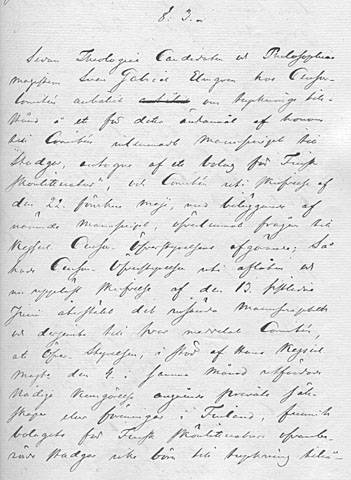 §. 3.
Sedan Theologiæ Candidaten och Philosophiæ
magistern Sven Gabriel Elmgren hos Censur-
Comitén anhållit om tryckningstill-
stånd å ett för detta ändamål af honom
till Comitén inlemnadt manuscript till
Stadgar, antagne af ett bolag för Finsk
Skönlitteratur, och Comitén uti skrifvelse af
den 22. Maji, med biläggande af
nämnde manuscript, frågan till
Kejserl. Censur-Öfverstyrelsens afgörande; Så
hade Censur-Öfverstyrelsen uti
nu uppläst skrifvelse af den 13. sistledne
Junii återstält det manuscriptet
och till svar meddelat Comitén,
att Öfver-Styrelsen, i stöd af Hans Kejserl.
Majts den 9. i samma månad utfärdade
Nådiga kungörelse angående privata säll-
skaper eller föreningar i Finland, funnit
bolagets för Finsk Skönlitteratur
Stadgar icke böra till tryckning